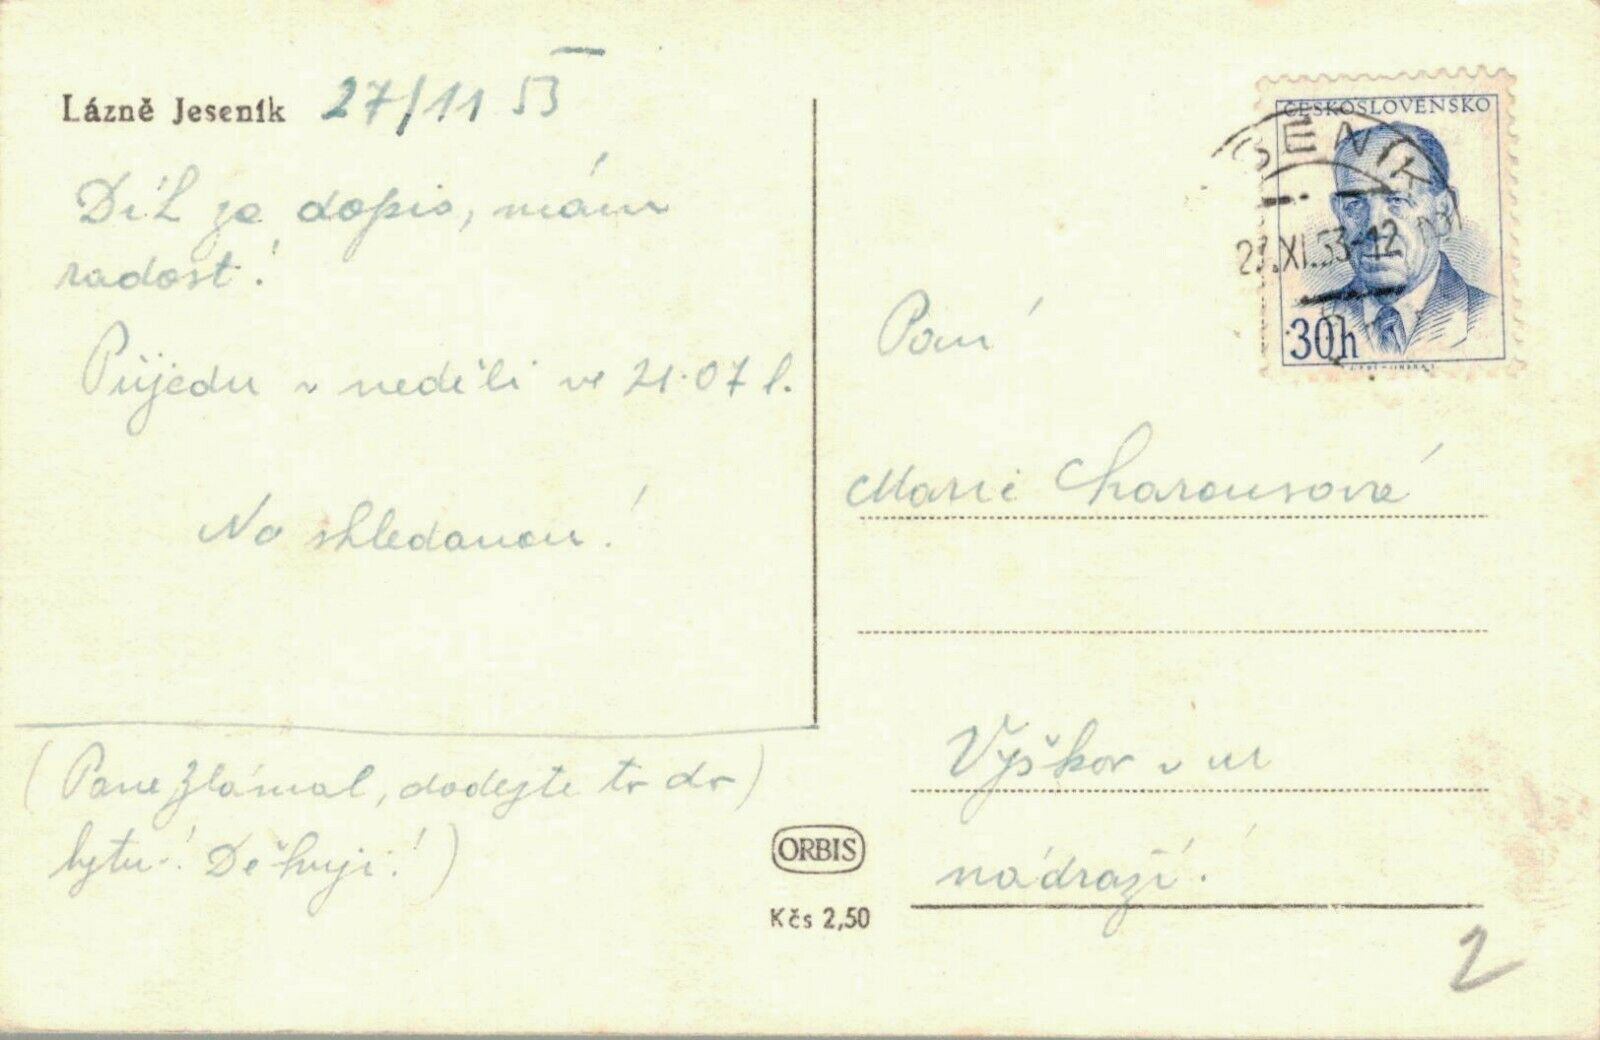 Lázně Jeseník 27/11 53
Dík za dopis, mám
radost!
Přijedu v neděli ve 21.07 h.
Na shledanou!
(Pane Zlámal, dodejte to do
bytu! Děkuji!)
ORBIS
Kčs 2,50
ČESKOSLOVENSKO
SENÍK
27.XI.53-12
30h
Paní
Marie Charousové
Vyškov u
nádraží!
2